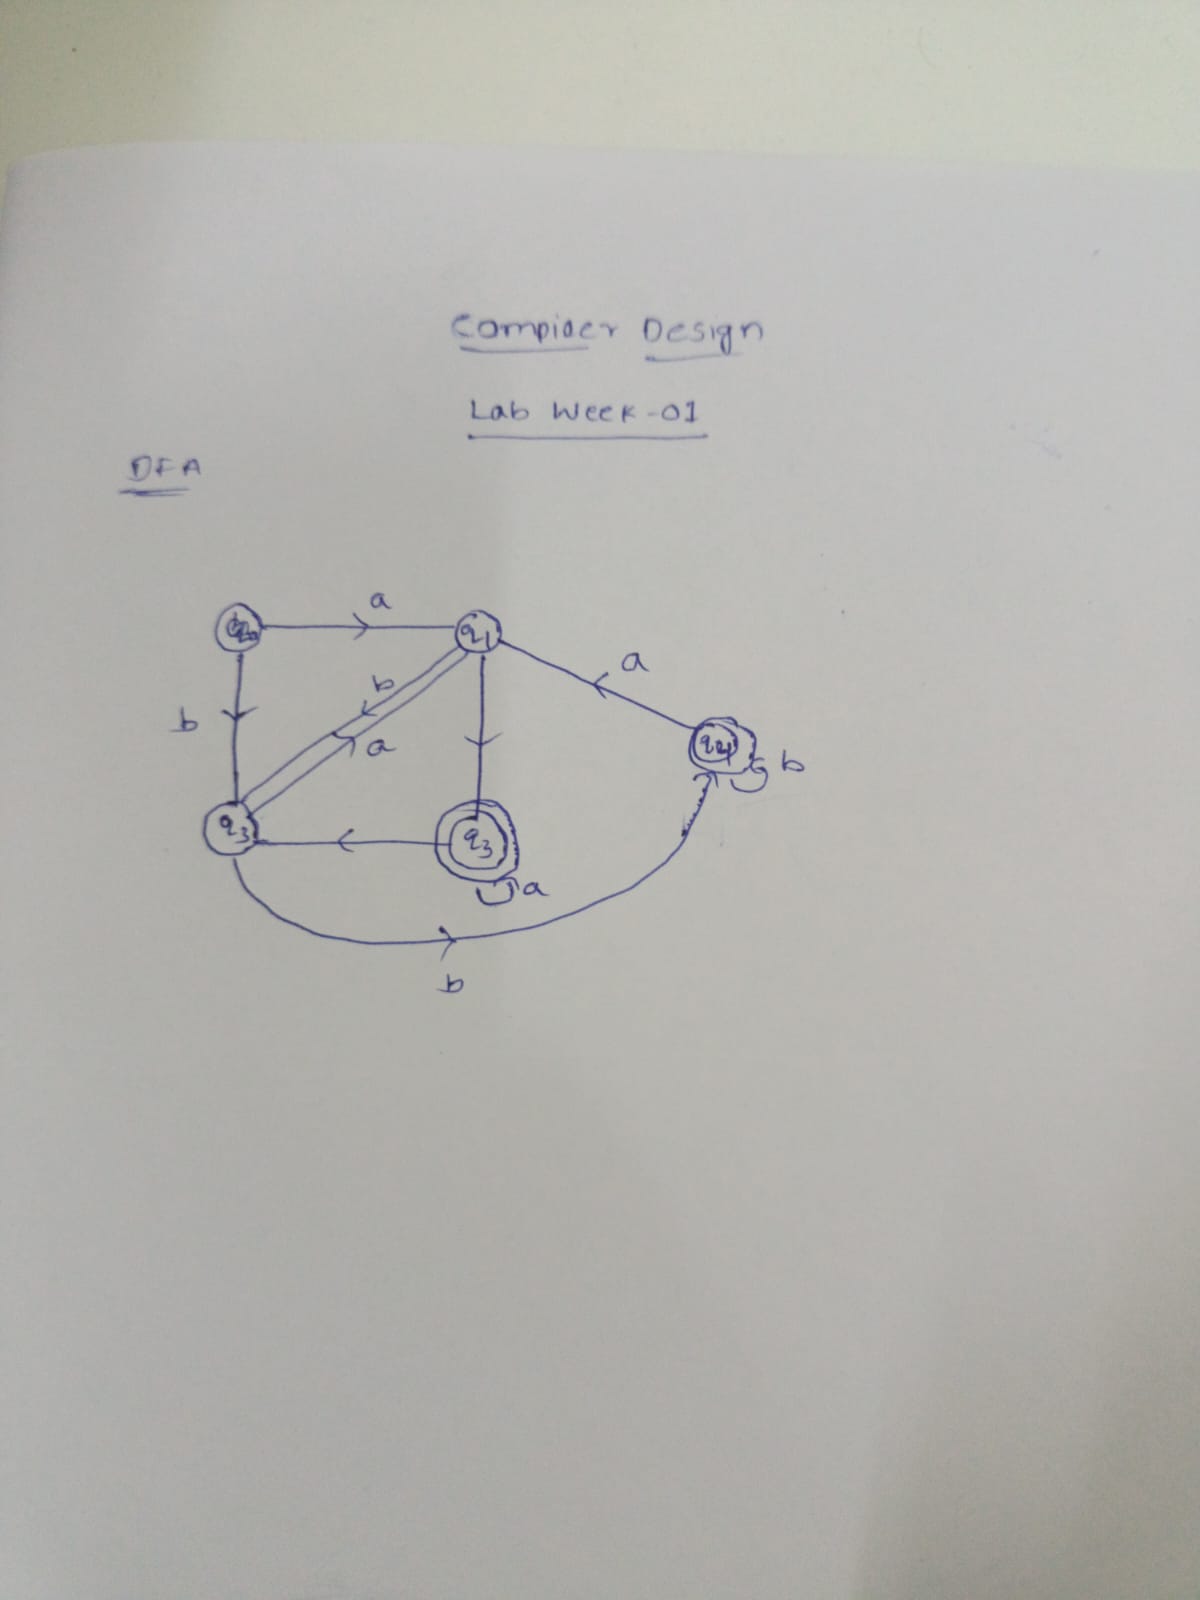 Compiler Design
Lab Week-01
DFA
a
q1
b
a
b
a
q4
b
q3
q3
a
b